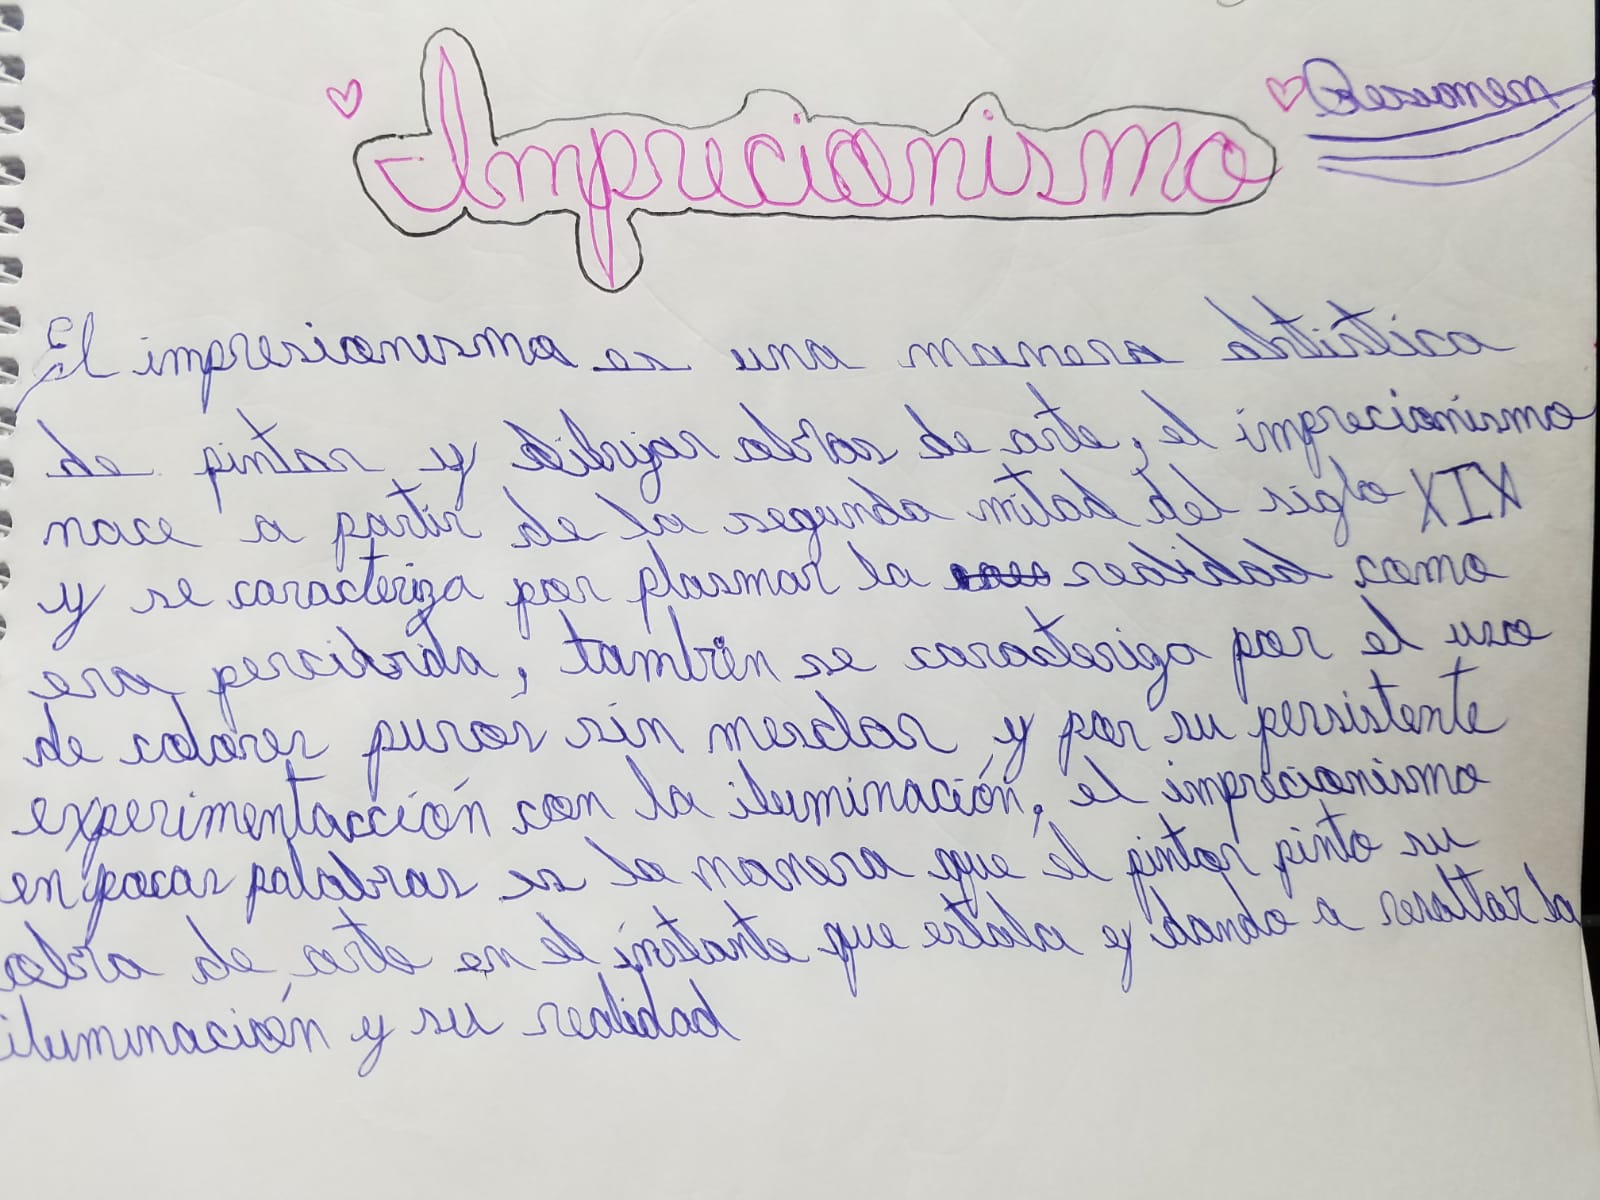 Imprecionismo
Resumen
El impresionismo es una manera artística
de pintar y dibujar obras de arte, el imprecionismo
nace a partir de la segunda mitad del siglo XIX
y se caracteriza por plasmar la realidad como
era percibida, tambien se caracteriza por el uso
de colores puros sin mesclar y por su persistente
experimentacción con la iluminación, el imprecionismo
en pocas palabras es la manera que el pintor pinto su
obra de arte en el instante que estaba y dando a resaltar la
iluminación y su realidad